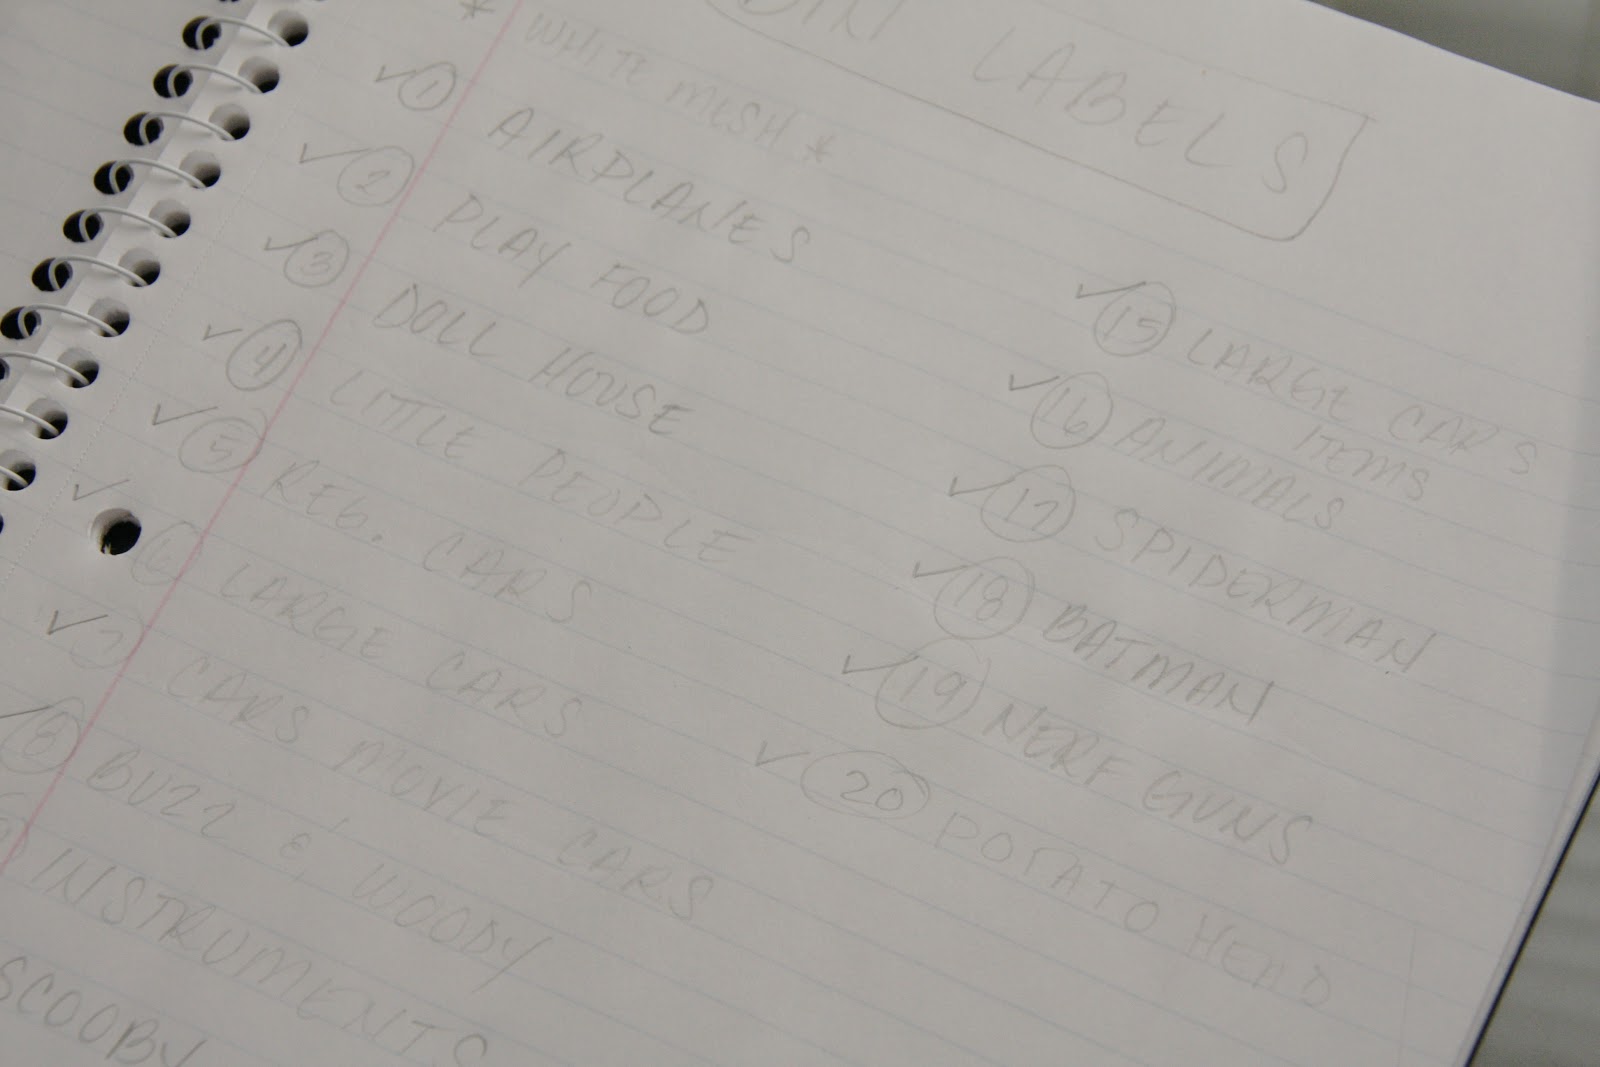 BIN LABELS
* WHITE MESH *
✓ 1 AIRPLANES
✓ 2 PLAY FOOD
✓ 3 DOLL HOUSE
✓ 4 LITTLE PEOPLE
✓ 5 REG. CARS
✓ 6 LARGE CARS
✓ 7 CARS MOVIE CARS
✓ 8 BUZZ & WOODY
9 INSTRUMENTS
SCOOBY
✓ 15 LARGE CARS
ITEMS
✓ 16 ANIMALS
✓ 17 SPIDERMAN
✓ 18 BATMAN
✓ 19 NERF GUNS
✓ 20 POTATO HEAD